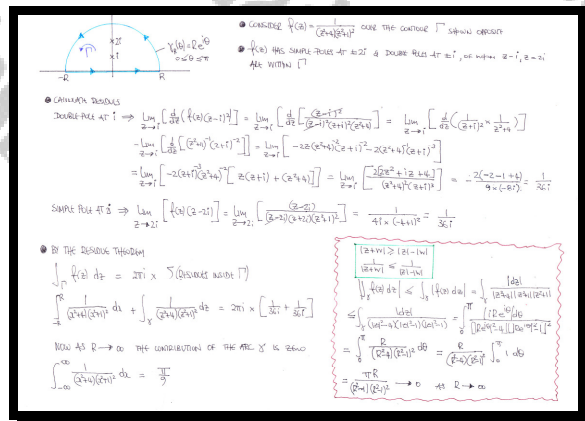 2i
i
Γ
γ(θ) = Re^{iθ}
0 ≤ θ ≤ π
-R
R
• CONSIDER f(z) = 1/((z²+4)(z²+1)²) OVER THE CONTOUR Γ SHOWN OPPOSITE
• f(z) HAS SIMPLE POLES AT ±2i & DOUBLE POLES AT ±i, OF WHICH z=i, z=2i
ARE WITHIN Γ
• CALCULATE RESIDUES
DOUBLE POLE AT i ⇒ Lim_{z→i} [d/dz (f(z)(z-i)²)] = Lim_{z→i} [d/dz [(z-i)²/((z-i)²(z+i)²(z²+4))]] = Lim_{z→i} [d/dz (1/(z+i)² × 1/(z²+4))]
= Lim_{z→i} [d/dz [(z²+4)^{-1}(z+i)^{-2}]] = Lim_{z→i} [-2z(z²+4)^{-2}(z+i)^{-2} - 2(z²+4)^{-1}(z+i)^{-3}]
= Lim_{z→i} [-2(z+i)^{-3}(z²+4)^{-2} [z(z+i) + (z²+4)]] = Lim_{z→i} [-2[2z²+iz+4]/((z²+4)²(z+i)³)] = -2(-2-1+4)/(9×(-8i)) = 1/36i
SIMPLE POLE AT 2i ⇒ Lim_{z→2i} [f(z)(z-2i)] = Lim_{z→2i} [(z-2i)/((z-2i)(z+2i)(z²+1)²)] = 1/(4i×(-4+1)²) = 1/36i
• BY THE RESIDUE THEOREM
∫_Γ f(z) dz = 2πi × Σ(RESIDUES INSIDE Γ)
∫_{-R}^{R} 1/((x²+4)(x²+1)²) dx + ∫_γ 1/((z²+4)(z²+1)²) dz = 2πi × [1/36i + 1/36i]
NOW AS R→∞ THE CONTRIBUTION OF THE ARC γ IS ZERO
∫_{-∞}^{∞} 1/((x²+4)(x²+1)²) dx = π/9
|z+w| ≥ ||z|-|w||
1/|z+w| ≤ 1/||z|-|w||
|∫_γ f(z) dz| ≤ ∫_γ |f(z) dz| = ∫_γ |dz|/(|z²+4||z²+1||z²+1|)
≤ ∫_γ |dz|/((|z|²-4)(|z|²-1)(|z|²-1)) = ∫_0^π |iRe^{iθ}|dθ/(||Re^{iθ}|²-4|[|Re^{iθ}|²-1]²)
= ∫_0^π R/((R²-4)(R²-1)²) dθ = R/((R²-4)(R²-1)²) ∫_0^π 1 dθ
= πR/((R²-4)(R²-1)²) → 0 AS R→∞